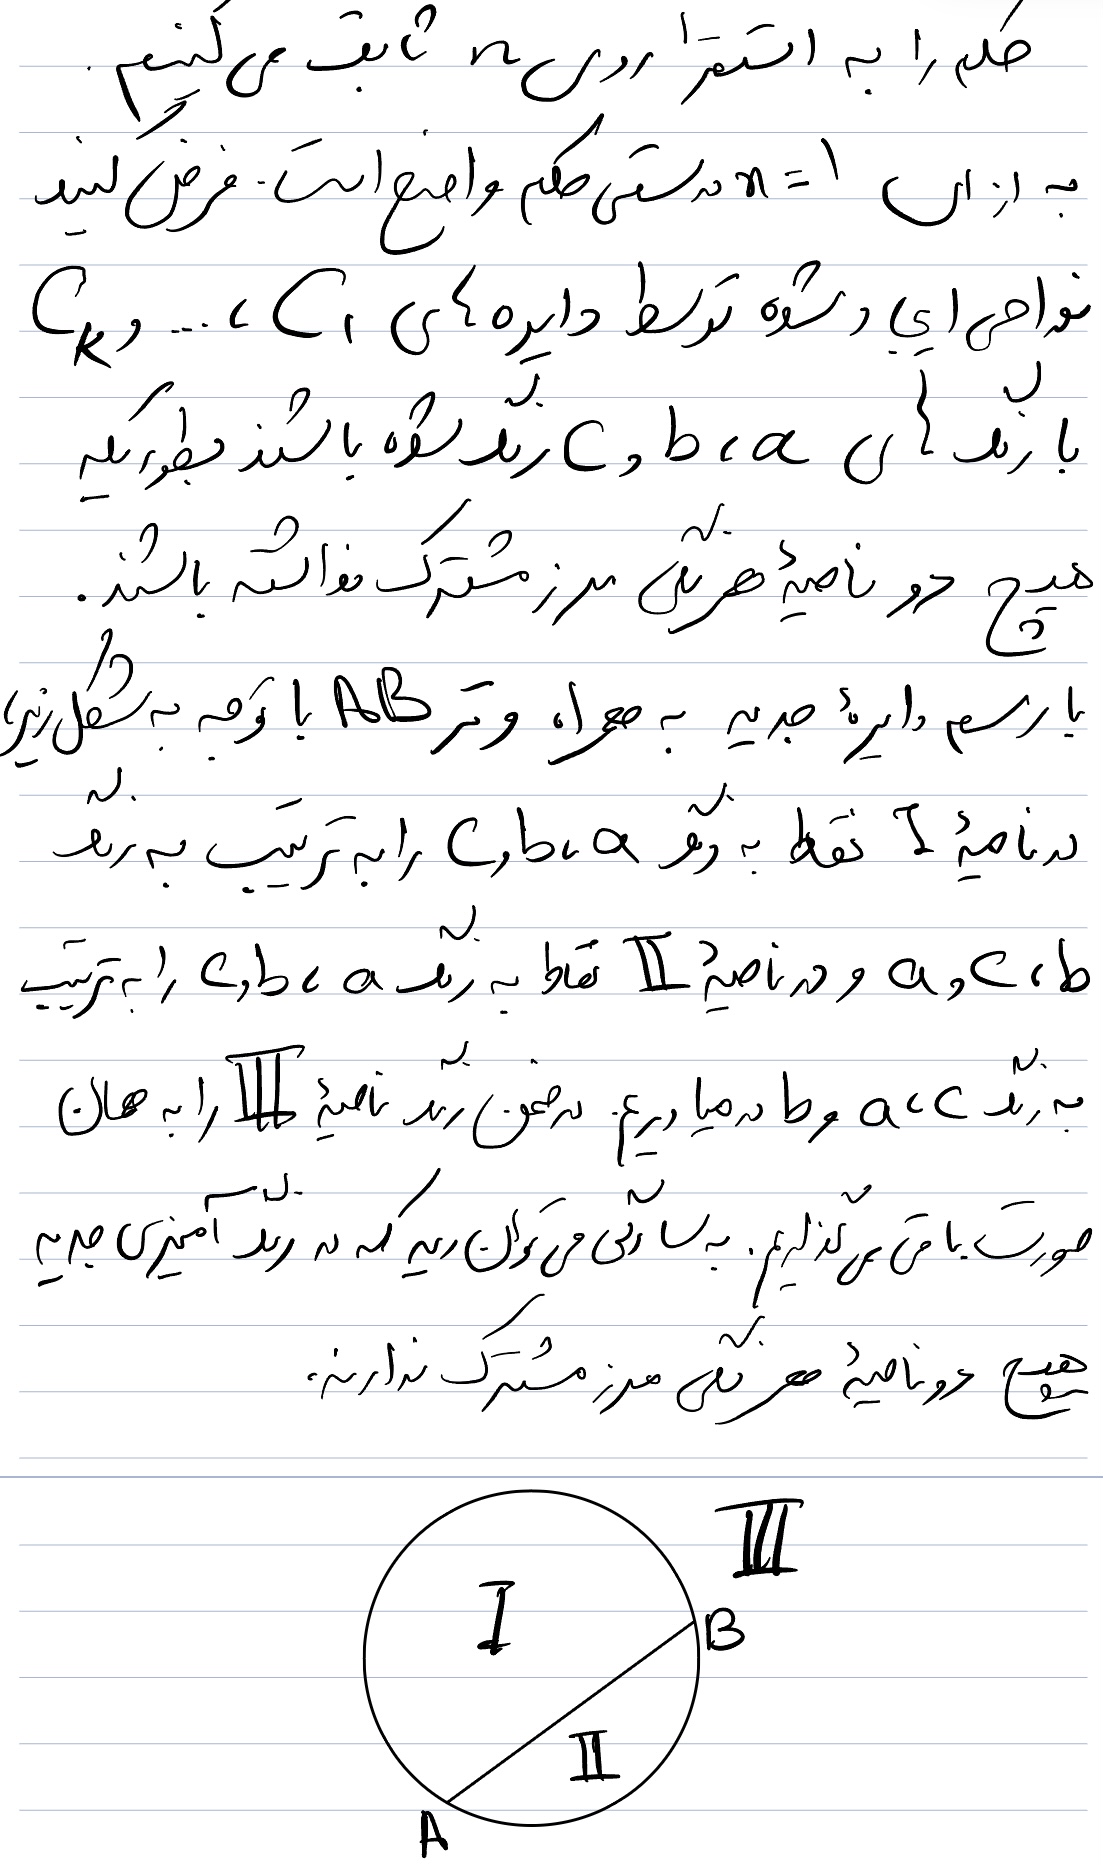 حکم را به استقرا روی n ثابت می‌کنیم.
به ازای n = ۱ درستی حکم واضح است. فرض کنید
نواحی ایجاد شده توسط دایره‌های C₁، ... و Cₖ
با رنگ‌های a، b و c رنگ شده باشند بطوریکه
هیچ دو ناحیهٔ هم‌رنگی مرز مشترک نداشته باشند.
با رسم دایرهٔ جدید به همراه وتر AB با توجه به شکل زیر،
در ناحیهٔ I نقاط به رنگ a، b و c را به ترتیب به رنگ
b، c و a و در ناحیهٔ II نقاط به رنگ a، b و c را به ترتیب
به رنگ c، a و b در میاوریم. در ضمن رنگ ناحیهٔ III را به همان
صورت باقی می‌گذاریم. به سادگی می‌توان دید که در رنگ آمیزی جدید
هیچ دو ناحیهٔ هم‌رنگی مرز مشترک ندارند.
III
I
B
II
A